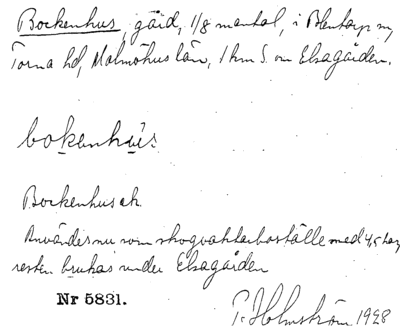 Bockenhus, gård, 1/8 mantal, i Blentarp sn,
Torna hd, Malmöhus län, 1 km S. om Elsagården.
bokenhús
Bockenhus ek.
Användes nu som skogvaktarboställe med 4,5 har
resten brukas under Elsagården
Nr 5831.
P. Holmström 1928